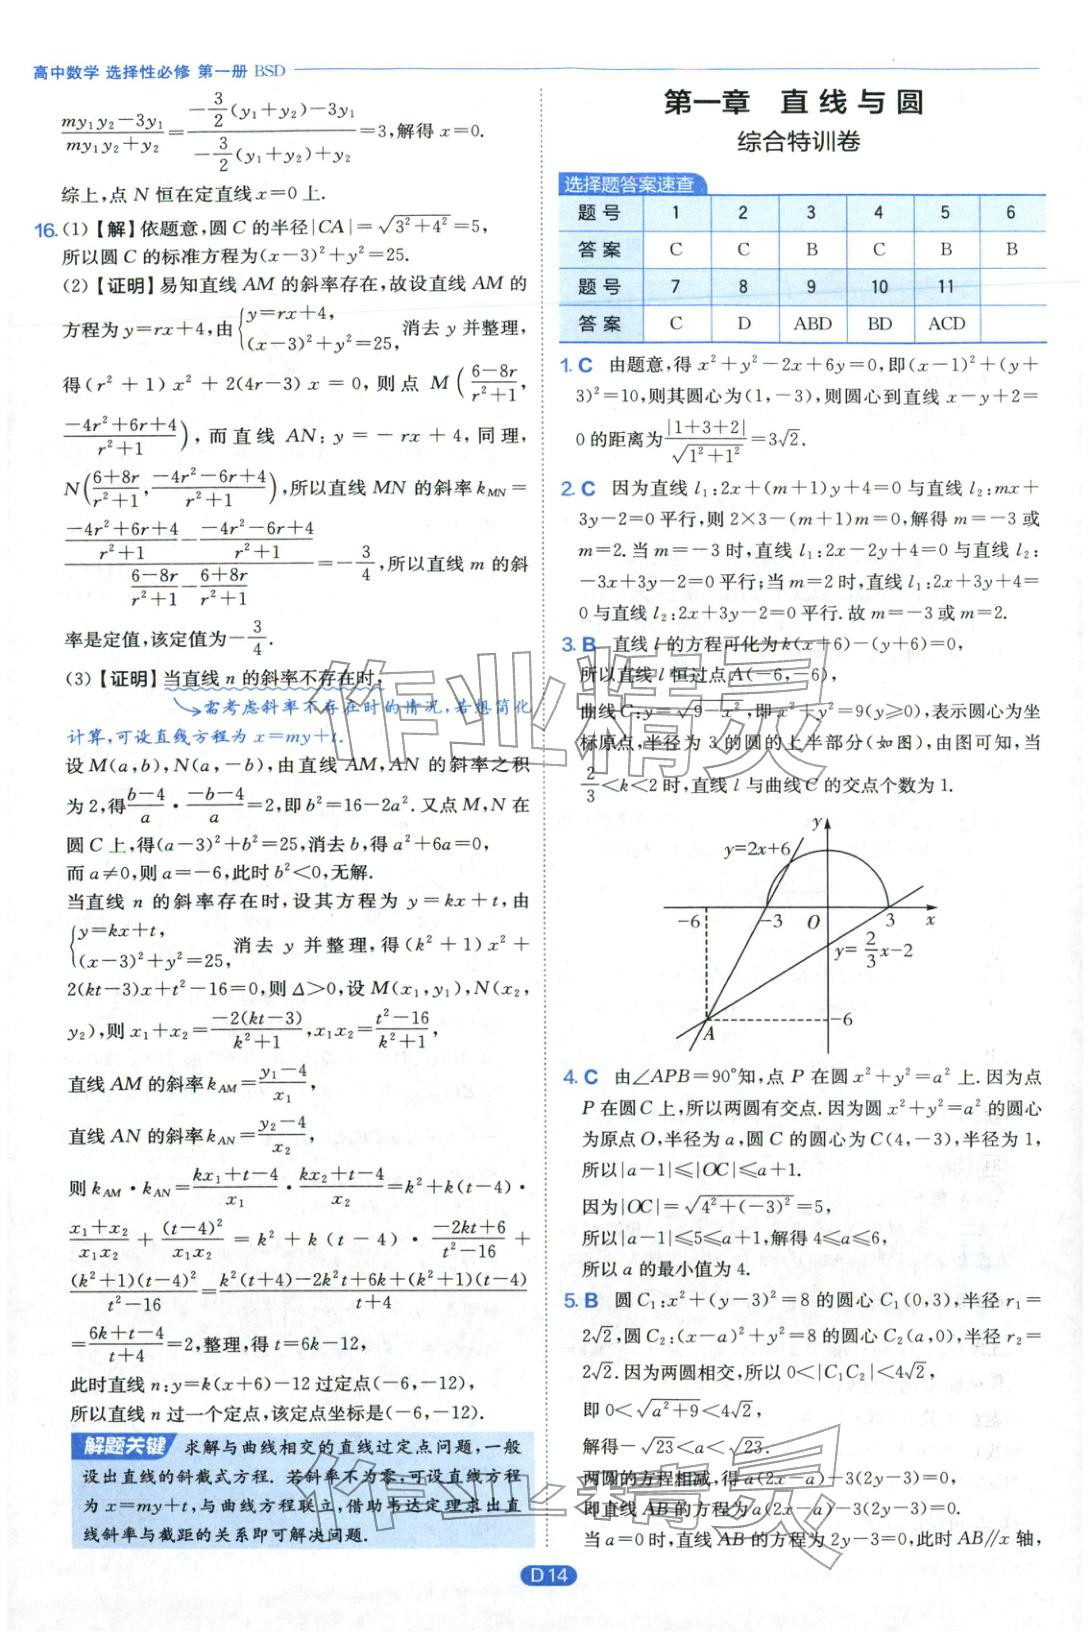 高中数学 选择性必修 第一册 BSD
\frac{my_1y_2-3y_1}{my_1y_2+y_2}=\frac{-\frac{3}{2}(y_1+y_2)-3y_1}{-\frac{3}{2}(y_1+y_2)+y_2}=3,解得 x=0.
综上,点 N 恒在定直线 x=0 上.
16.(1)【解】依题意,圆 C 的半径|CA|=\sqrt{3^2+4^2}=5,
所以圆 C 的标准方程为(x-3)²+y²=25.
(2)【证明】易知直线 AM 的斜率存在,故设直线 AM 的
方程为 y=rx+4,由\begin{cases}y=rx+4,\\(x-3)^2+y^2=25,\end{cases}消去 y 并整理,
得(r²+1)x²+2(4r-3)x=0,则点 M(\frac{6-8r}{r^2+1},
\frac{-4r^2+6r+4}{r^2+1}),而直线 AN:y=-rx+4,同理,
N(\frac{6+8r}{r^2+1},\frac{-4r^2-6r+4}{r^2+1}),所以直线 MN 的斜率 k_{MN}=
\frac{\frac{-4r^2+6r+4}{r^2+1}-\frac{-4r^2-6r+4}{r^2+1}}{\frac{6-8r}{r^2+1}-\frac{6+8r}{r^2+1}}=-\frac{3}{4},所以直线 m 的斜
率是定值,该定值为-\frac{3}{4}.
(3)【证明】当直线 n 的斜率不存在时,
需考虑斜率不存在时的情况,若想简化
计算,可设直线方程为 x=my+t.
设 M(a,b),N(a,-b),由直线 AM,AN 的斜率之积
为 2,得\frac{b-4}{a}·\frac{-b-4}{a}=2,即 b²=16-2a².又点 M,N 在
圆 C 上,得(a-3)²+b²=25,消去 b,得 a²+6a=0,
而 a≠0,则 a=-6,此时 b²<0,无解.
当直线 n 的斜率存在时,设其方程为 y=kx+t,由
\begin{cases}y=kx+t,\\(x-3)^2+y^2=25,\end{cases}消去 y 并整理,得(k²+1)x²+
2(kt-3)x+t²-16=0,则 Δ>0,设 M(x₁,y₁),N(x₂,
y₂),则 x₁+x₂=\frac{-2(kt-3)}{k^2+1},x₁x₂=\frac{t^2-16}{k^2+1},
直线 AM 的斜率 k_{AM}=\frac{y_1-4}{x_1},
直线 AN 的斜率 k_{AN}=\frac{y_2-4}{x_2},
则 k_{AM}·k_{AN}=\frac{kx_1+t-4}{x_1}·\frac{kx_2+t-4}{x_2}=k²+k(t-4)·
\frac{x_1+x_2}{x_1x_2}+\frac{(t-4)^2}{x_1x_2}=k²+k(t-4)·\frac{-2kt+6}{t^2-16}+
\frac{(k^2+1)(t-4)^2}{t^2-16}=\frac{k^2(t+4)-2k^2t+6k+(k^2+1)(t-4)}{t+4}
=\frac{6k+t-4}{t+4}=2,整理,得 t=6k-12,
此时直线 n:y=k(x+6)-12 过定点(-6,-12),
所以直线 n 过一个定点,该定点坐标是(-6,-12).
解题关键 求解与曲线相交的直线过定点问题,一般
设出直线的斜截式方程.若斜率不为零,可设直线方程
为 x=my+t,与曲线方程联立,借助韦达定理求出直
线斜率与截距的关系即可解决问题.
第一章 直线与圆
综合特训卷
选择题答案速查
题号 1 2 3 4 5 6
答案 C C B C B B
题号 7 8 9 10 11
答案 C D ABD BD ACD
1. C 由题意,得 x²+y²-2x+6y=0,即(x-1)²+(y+
3)²=10,则其圆心为(1,-3),则圆心到直线 x-y+2=
0 的距离为\frac{|1+3+2|}{\sqrt{1^2+1^2}}=3\sqrt{2}.
2. C 因为直线 l₁:2x+(m+1)y+4=0 与直线 l₂:mx+
3y-2=0 平行,则 2×3-(m+1)m=0,解得 m=-3 或
m=2.当 m=-3 时,直线 l₁:2x-2y+4=0 与直线 l₂:
-3x+3y-2=0 平行;当 m=2 时,直线 l₁:2x+3y+4=
0 与直线 l₂:2x+3y-2=0 平行.故 m=-3 或 m=2.
3. B 直线 l 的方程可化为 k(x+6)-(y+6)=0,
所以直线 l 恒过点 A(-6,-6),
曲线 C:y=\sqrt{9-x^2},即 x²+y²=9(y≥0),表示圆心为坐
标原点,半径为 3 的圆的上半部分(如图),由图可知,当
\frac{2}{3}<k<2 时,直线 l 与曲线 C 的交点个数为 1.
y
y=2x+6
-6 -3 O 3 x
y=\frac{2}{3}x-2
A -6
4. C 由∠APB=90°知,点 P 在圆 x²+y²=a² 上.因为点
P 在圆 C 上,所以两圆有交点.因为圆 x²+y²=a² 的圆心
为原点 O,半径为 a,圆 C 的圆心为 C(4,-3),半径为 1,
所以|a-1|≤|OC|≤a+1.
因为|OC|=\sqrt{4^2+(-3)^2}=5,
所以|a-1|≤5≤a+1,解得 4≤a≤6,
所以 a 的最小值为 4.
5. B 圆 C₁:x²+(y-3)²=8 的圆心 C₁(0,3),半径 r₁=
2\sqrt{2},圆 C₂:(x-a)²+y²=8 的圆心 C₂(a,0),半径 r₂=
2\sqrt{2}.因为两圆相交,所以 0<|C₁C₂|<4\sqrt{2},
即 0<\sqrt{a^2+9}<4\sqrt{2},
解得-\sqrt{23}<a<\sqrt{23}.
两圆的方程相减,得 a(2x-a)-3(2y-3)=0,
即直线 AB 的方程为 a(2x-a)-3(2y-3)=0,
当 a=0 时,直线 AB 的方程为 2y-3=0,此时 AB∥x 轴,
D14
作业精灵
作业精灵